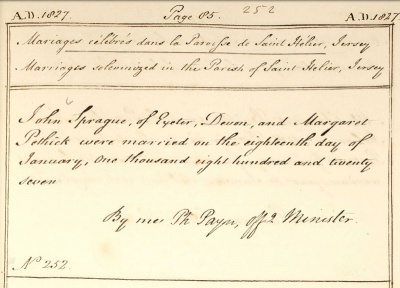 A.D. 1827. Page 85. 252 A.D. 1827.
Mariages célébrés dans la Paroisse de Saint Hélier, Jersey
Marriages solemnized in the Parish of Saint Helier, Jersey
John Sprague, of Exeter, Devon, and Margaret
Pethick were married on the eighteenth day of
January, One thousand eight hundred and twenty
seven
By me Ph. Payn, offg Minister.
No 252.